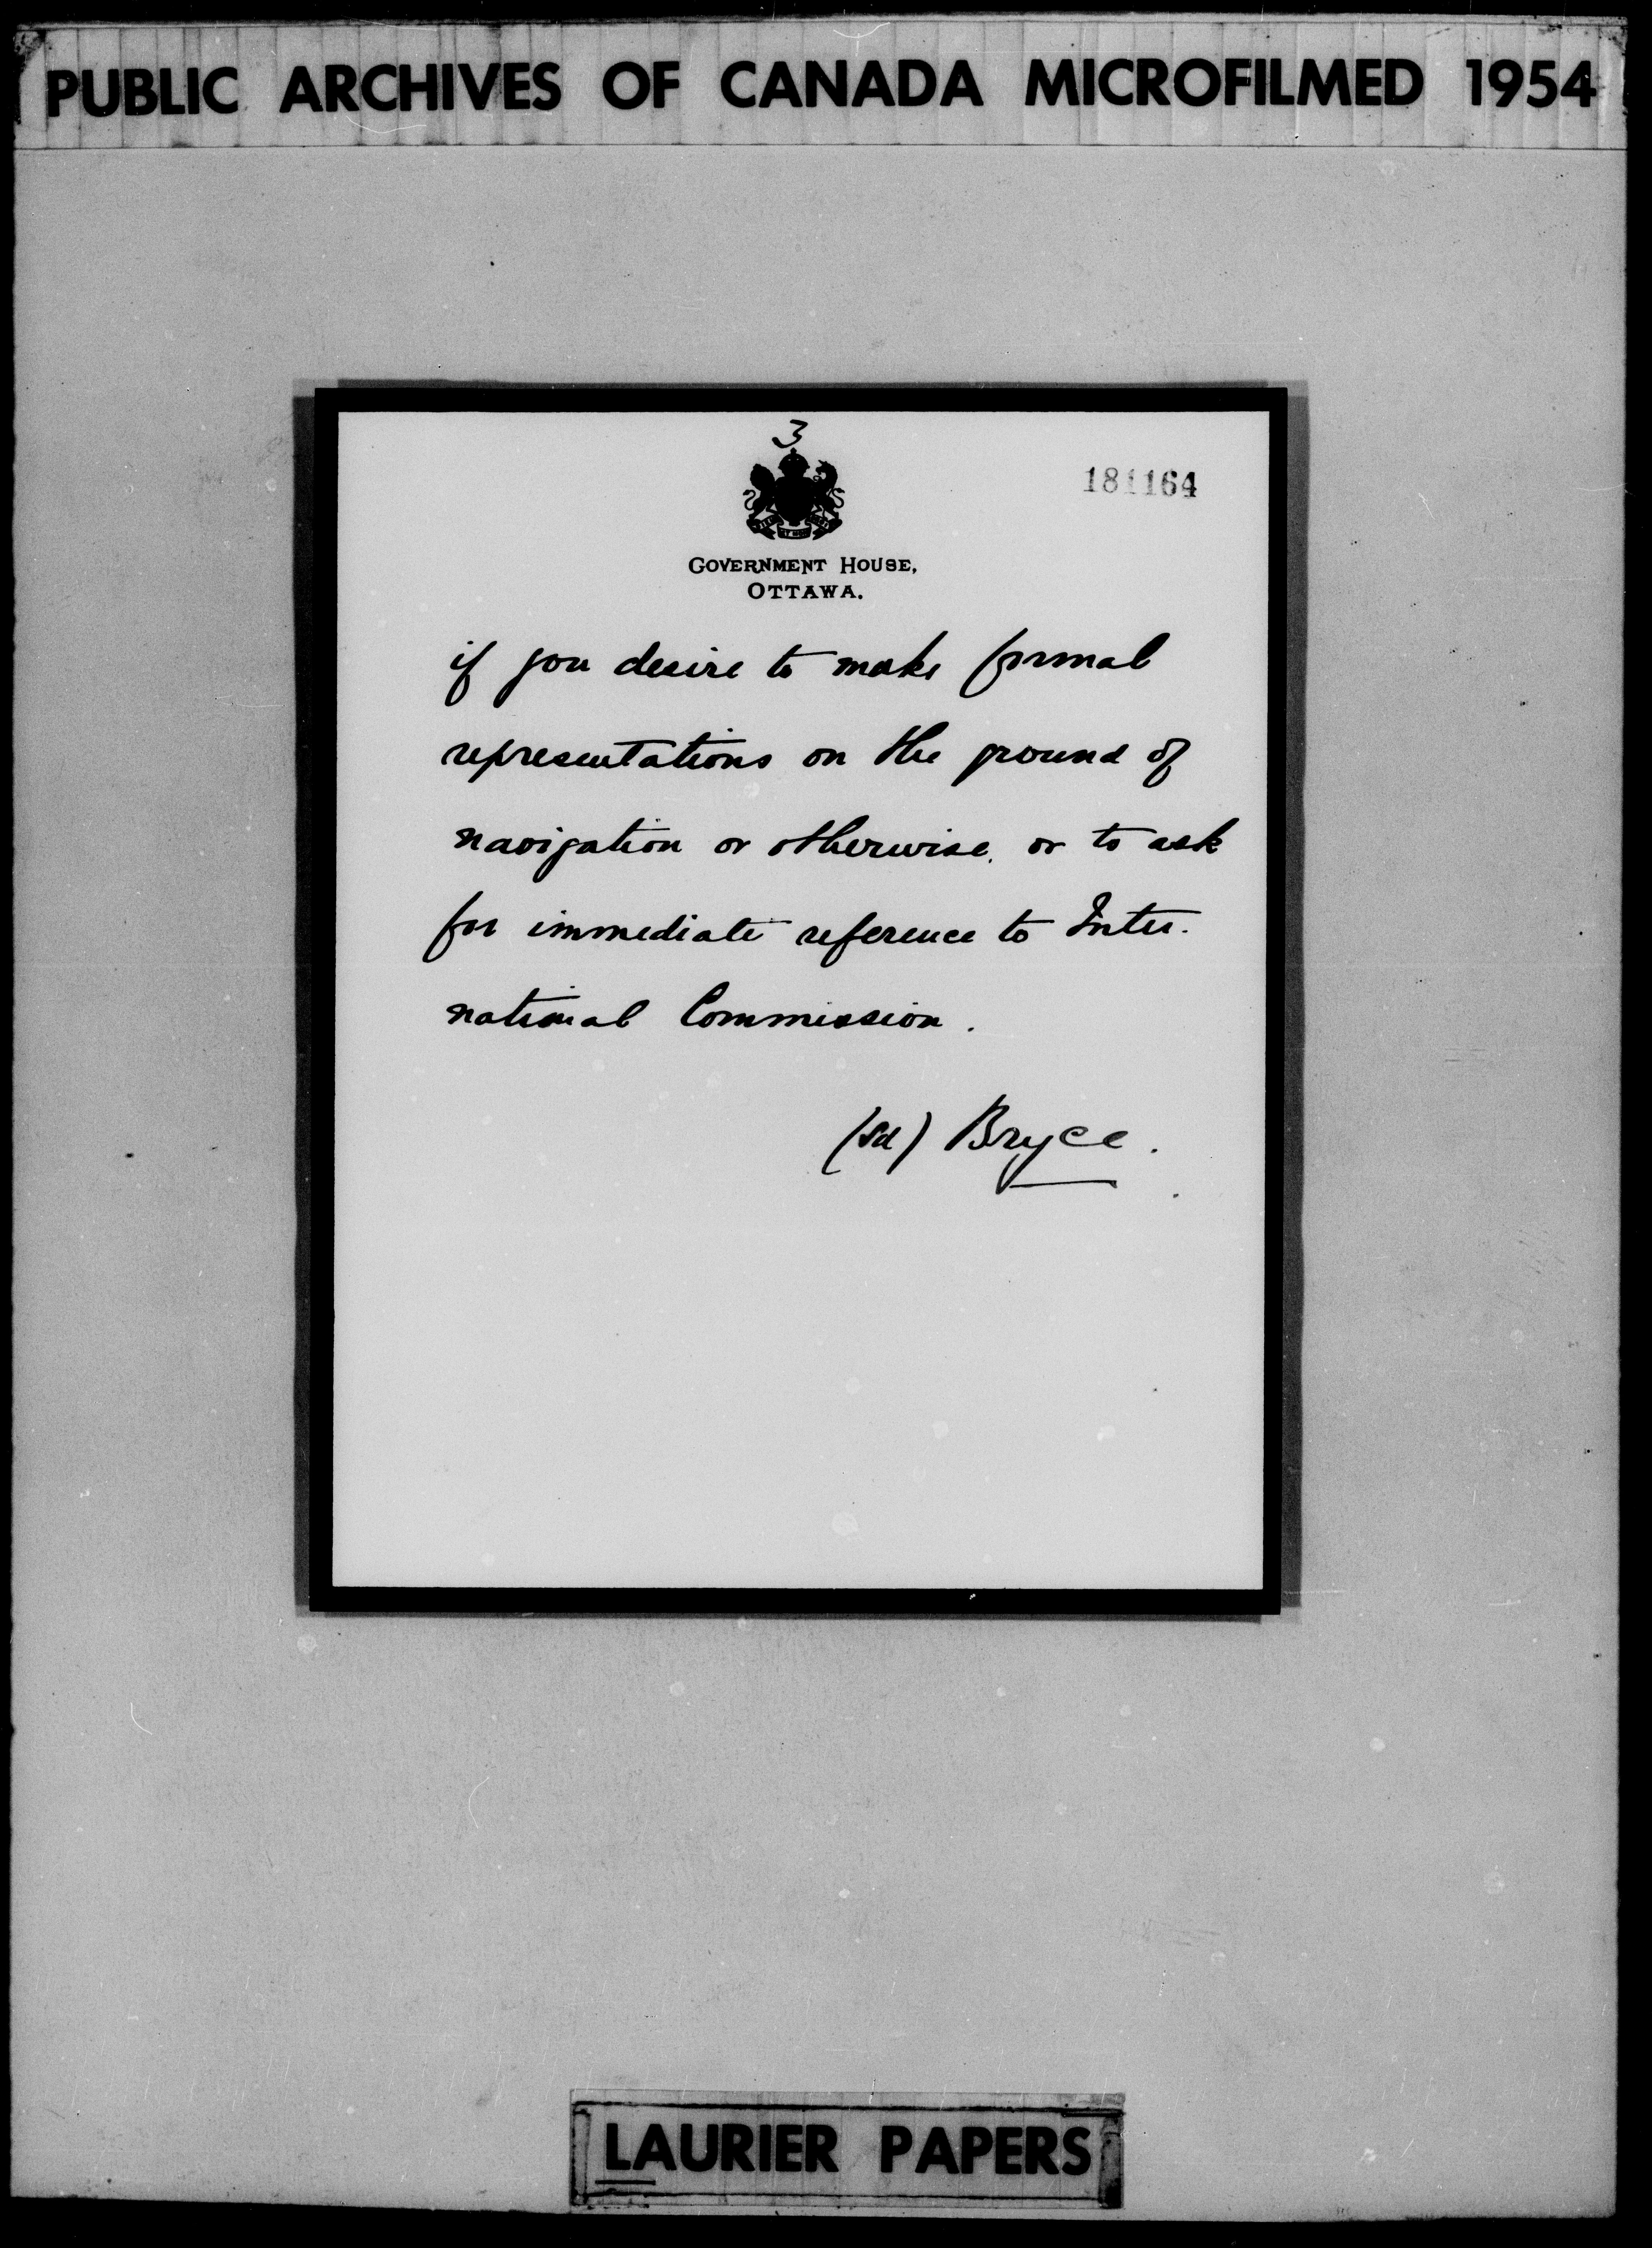 PUBLIC ARCHIVES OF CANADA MICROFILMED 1954
3
181164
GOVERNMENT HOUSE,
OTTAWA.
if you desire to make formal
representations on the ground of
navigation or otherwise, or to ask
for immediate reference to Inter-
national Commission.
(sd) Bryce.
LAURIER PAPERS